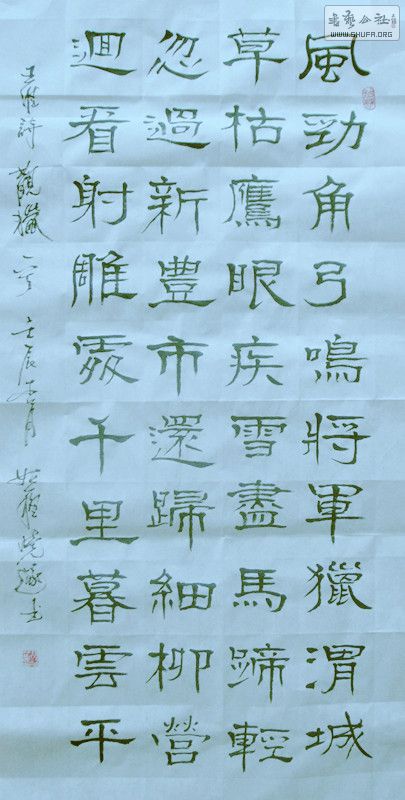 風勁角弓鳴將軍獵渭城
草枯鷹眼疾雪盡馬蹄輕
忽過新豐市還歸細柳營
迴看射雕處千里暮雲平
王維詩觀獵一首壬辰
書
WWW.SHUFA.ORG